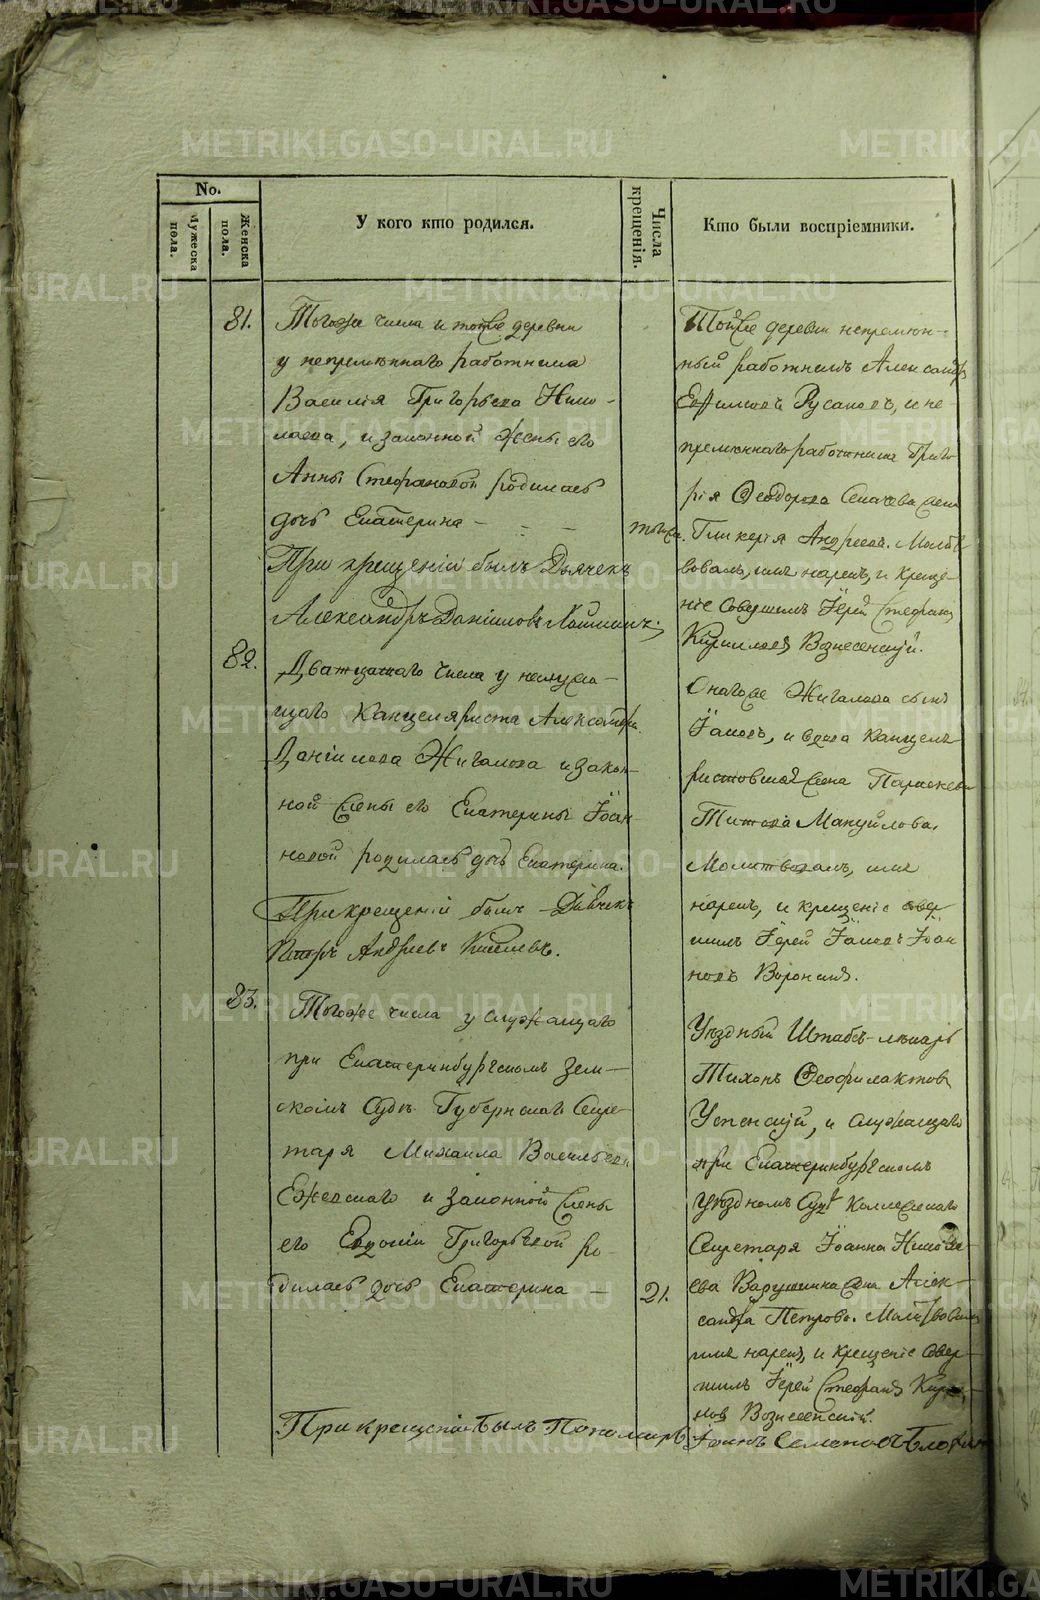 METRIKI.GASO-URAL.RU
No.
Мужеска пола.
Женска пола.
У кого кто родился.
Числа крещенія.
Кто были воспріемники.
81.
Тогоже числа и тойже деревни
у непремѣннаго работника
Василія Григорьева Нико-
лаева, и законной жены его
Анны Стефановой родилась
дочь Екатерина - - -
При крещеніи былъ Дьячекъ
Александръ Данiиловъ
тогоже.
Тойже деревни непремѣн-
ный работникъ Александръ
Ефимовъ Русаковъ, и не-
премѣннаго работника Григо-
рія Ѳеодорова жена
Гликерія Андреева. Молит-
вовалъ, имя нарекъ, и креще-
ніе совершилъ Іерей Стефанъ
Кирилловъ Вознесенскій.
82.
Дватцатаго числа у неслужа-
щаго Канцеляриста Александра
Даніилова Жигалова и закон-
ной жены его Екатерины Іоан-
новой родилась дочь Екатерина.
При крещеніи былъ Дьячекъ
Петръ Андреевъ Киселевъ.
Онагоже Жигалова сынъ
Іаковъ, и вдова Канцеля-
ристовская жена Параскева
Титова Мануйлова.
Молитвовалъ, имя
нарекъ, и крещеніе совер-
шилъ Іерей Іаковъ Іоан-
новъ
83.
Тогоже числа у служащаго
при Екатеринбургскомъ Зем-
скомъ Судѣ Губернскаго Секре-
таря Михаила Васильева
Ежевскаго и законной жены
его Евдокіи Григорьевой ро-
дилась дочь Екатерина -
21.
Уѣздный Штабъ-лѣкарь
Тихонъ Ѳеофилактовъ
Успенскій, и служащаго
при Екатеринбургскомъ
Уѣздномъ Судѣ Коллежскаго
Секретаря Іоанна Никола-
ева жена Алек-
сандра Петрова. Молитвовалъ,
имя нарекъ, и крещеніе совер-
шилъ Іерей Стефанъ Кирил-
ловъ Вознесенскій.
При крещеніи былъ Пономарь
Іоаннъ Семеновъ